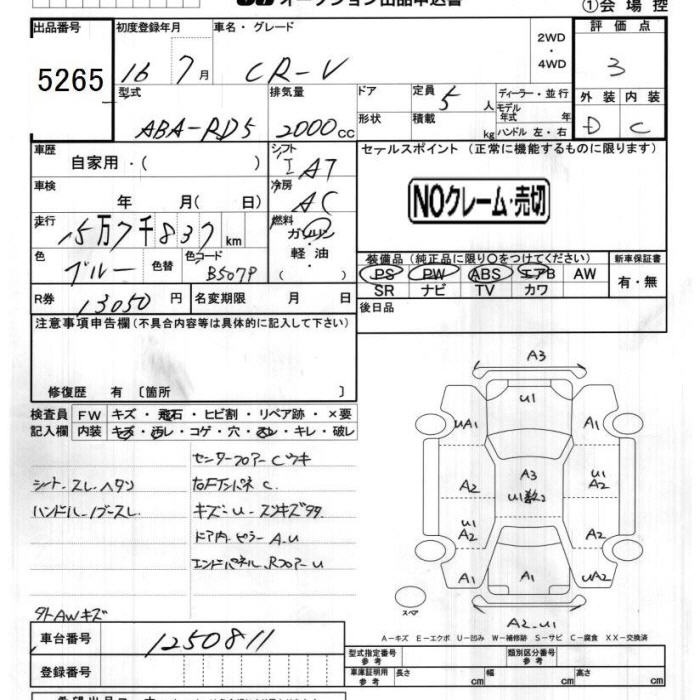 オークション出品申込書
①会場控
出品番号 5265
初度登録年月 16 7月
車名・グレード CR-V
2WD・4WD
評価点 3
外装 D
内装 C
型式 ABA-RD5
排気量 2000cc
ドア
形状
定員 5人
積載 kg
ディーラー・並行
モデル年式 年
ハンドル 左・右
車歴 自家用・( )
シフト IAT
セールスポイント (正常に機能するものに限ります)
車検 年 月( 日)
冷房 AC
NOクレーム・売切
走行 15万7千837km
燃料 ガソリン・軽油・( )
色 ブルー
色替
色コード B507P
装備品 (純正品に限り○をつけてください)
新車保証書
PS PW ABS エアB AW
SR ナビ TV カワ
有・無
R券 13050円
名変期限 月 日
後日品
注意事項申告欄 (不具合内容等は具体的に記入して下さい)
修復歴 有 〔箇所 〕
検査員記入欄
FW キズ・飛石・ヒビ割・リペア跡・×要
内装 キズ・汚レ・コゲ・穴・スレ・キレ・破レ
センターフロアーCツキ
シート.スレ.ヘタリ
右FインパネC.
ハンドル.ノブスレ
キズ-U-スリキズ多々
ドア内.ピラーA.U
エンドパネル.RフロアーU
外AWキズ
A3
U1
UA1
A1
A3
U1数2
A2
U1
A2
U1
A2
A2
A1
A1
UA2
スペア
A2-U1
A-キズ E-エクボ U-凹み W-補修跡 S-サビ C-腐食 XX-交換済
車台番号 1250811
登録番号
型式指定番号 参考
類別区分番号 参考
車庫証明用 参考
長さ cm
幅 cm
高さ cm